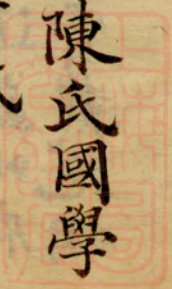 陳氏國學